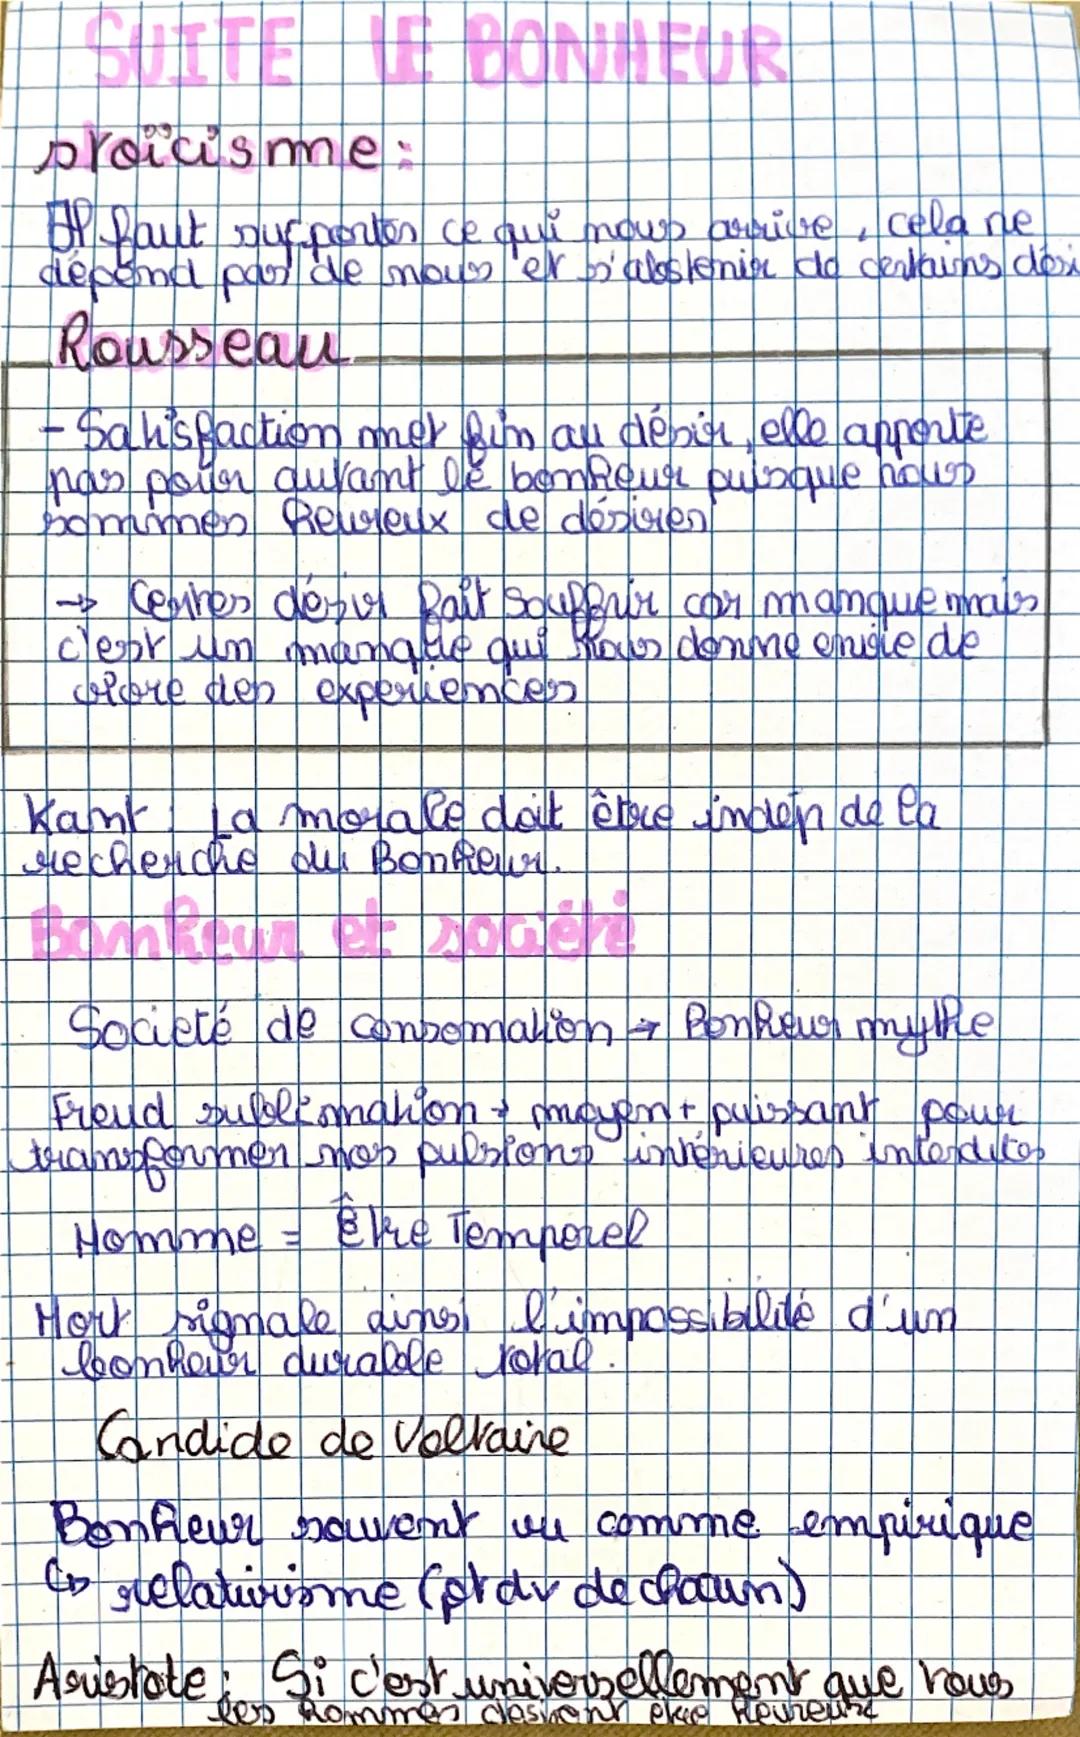 SUITE LE BONHEUR
stoïcisme :
Il faut supporter ce qui nous arrive, cela ne
dépend pas de nous et s'abstenir de certains dési
Rousseau
- Satisfaction met fin au désir, elle apporte
pas pour autant le bonheur puisque nous
sommes heureux de désirer
→ Certes désir fait souffrir car manque mais
c'est un manque qui nous donne envie de
vivre des experiences
Kant : La morale doit être indép de la
recherche du Bonheur.
Bonheur et société
Societé de consomation → Bonheur mythe
Freud sublimation → moyen + puissant pour
transformer nos pulsions intérieures interdites
Homme = Être Temporel
Mort signale ainsi l'impossibilité d'un
bonheur durable total.
Candide de Voltaire
Bonheur souvent vu comme empirique
↳ relativisme (pt dv de chacun)
Aristote : Si c'est universellement que tous
les hommes desirent être heureux